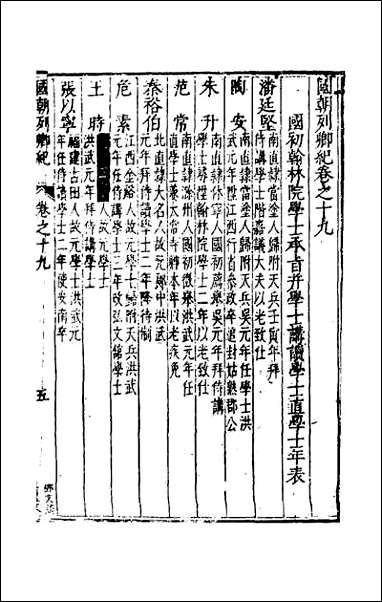 國朝列卿紀卷之十九
國初翰林院學士承旨并學士講讀學士直學士年表
潘廷堅
南直隸當塗人歸附天兵壬寅年拜
侍講學士階嘉議大夫以老致仕
陶安
南直隸當塗人歸附天兵吳元年任學士洪
武元年陞江西行省參政卒追封姑熟郡公
朱升
南直隸休寧人國初徵吳元年拜侍講
學士尋陞翰林院學士二年以老致仕
范常
南直隸滁州人國初徵舉洪武元年任
直學士兼太常寺卿本年以老疾免
秦裕伯
北直隸大名人故元郎中洪武
元年拜侍講學士二年降待制
危素
江西金谿人故元學士歸附天兵洪武
元年任侍講學士三年改弘文館學士
王時
人故元學士
洪武元年拜侍講學士
張以寧
福建古田人故元學士洪武元
年任侍讀學士二年使安南卒
國朝列卿紀
卷之十九
五